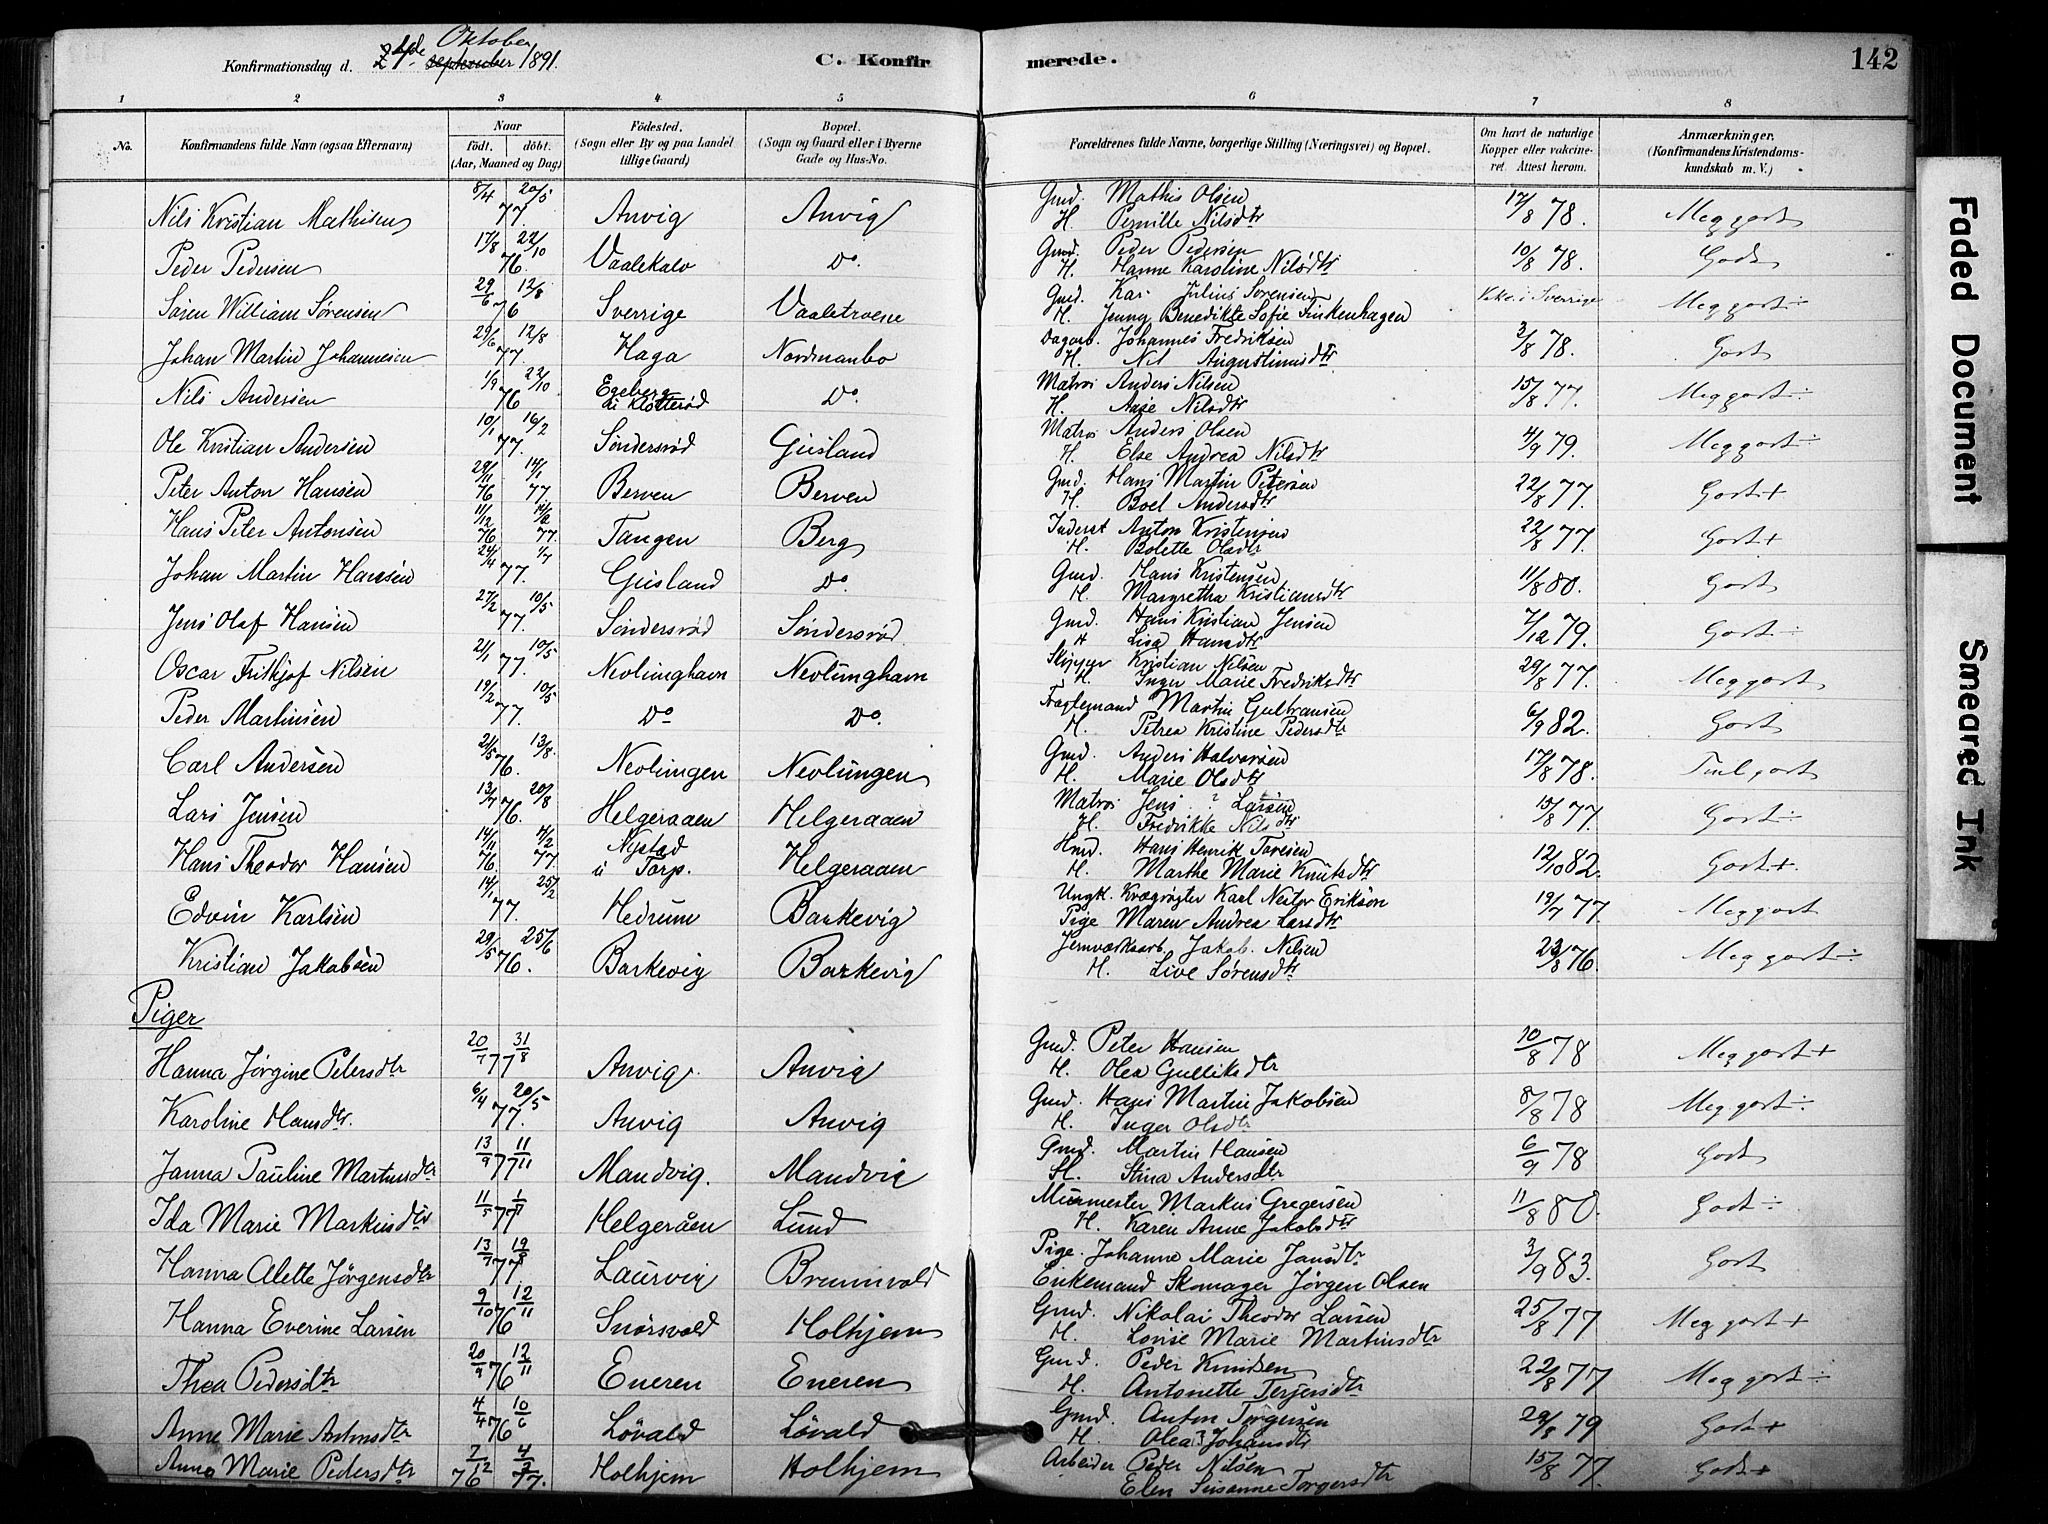 Konfirmationsdag d. 4de Oktober 1891. C. Konfirmerede. 142
1 2 3 4 5 6 7 8
No. Konfirmandens fulde Navn (ogsaa Efternavn) Naar födt. döbt. (Aar, Maaned og Dag) Födested. (Sogn eller By og paa Landet tillige Gaard) Bopæl. (Sogn og Gaard eller i Byerne Gade og Hus-No. Forældrenes fulde Navne, borgerlige Stilling (Næringsvei) og Bopæl. Om havt de naturlige Kopper eller vakcineret. Attest herom. Anmærkninger. (Konfirmandens Kristendomskundskab m. V.)
Nils Kristian Mathisen 8/4 20/5 77. Anvig Anvig Gmd. Mathis Olsen 17/8 78. Meg godt
H. Pernille Nilsdtr
Peder Pedersen 17/8 22/10 76. Vaalekalv Do. Gmd. Peder Pedersen 10/8 78. Godt
H. Hanne Karoline Nilsdtr
Søren William Sørensen 29/6 12/8 76 Sverrige Vaaletroene Gmd. Julius Sørensen Vakc. i Sverrige Meg godt ÷
H. Jenny Benedikte Sofie Finkenhagen
Johan Martin Johannesen 29/6 12/8 77. Haga Nordmanbo Dagarb. Johannes Fredriksen 3/8 78. Godt
H. Augustinusdtr
Nils Andersen 1/9 22/10 76 Egeberg u. Klotterød Do. Matros Anders Nilsen 15/8 77. Meg godt ÷
H. Aase Nilsdtr
Ole Kristian Andersen 10/1 16/2 77. Söndersröd Guisland Matros Anders Olsen 4/9 79. Meg godt ÷
H. Else Andrea Nilsdtr
Peter Anton Hansen 29/11 76 14/1 77. Berven Berven Gmd. Hans Martin Petersen 22/8 77. Godt +
H. Boel Andersdtr
Hans Peter Antonsen 11/12 76 14/2 77. Tangen Berg Inderst Anton Kristensen 22/8 77. Godt +
H. Bolette Olsdtr
Johan Martin Hansen 24/4 1/7 77. Guisland Do. Gmd. Hans Kristensen 11/8 80. Godt
H. Margretha Kristiansdtr
Jens Olaf Hansen 27/2 10/5 77. Söndersröd Söndersröd Gmd. Hans Kristian Jensen 7/12 79. Godt ÷
H Lisa Hansdtr
Oscar Frithjof Nilsen 21/1 10/5 77. Nevlunghavn Nevlunghavn Skipper Kristian Nilsen 29/8 77. Meg godt
H. Inger Marie Fredriksdtr
Peder Martinsen 19/2 10/5 77. Do Do. Fragtemand Martin Gulbransen 6/9 82. Godt
H. Petrea Kristine Pedersdtr
Carl Andersen 21/5 13/8. 76. Nevlungen Nevlungen Gmd. Anders Halvorsen 17/8 78. Taal godt
H. Marie Olsdtr
Lars Jensen 13/7 20/8 76. Helgeraaen Helgeraaen Matros Jens ? Larsen 15/8 77. Godt ÷
H. Fredrikke Nilsdtr
Hans Theodor Hansen 14/11 76. 4/2 77. Nystad u Torp. Helgeraaen Hmd. Hans Henrik Toresen 12/10 82. Godt +.
H. Marthe Marie Knutsdtr
Edvin Karlsen 14/1 25/2 77. Hedrum Barkevig Ungk. Krægrøgter Karl Nestor Eriksøn 19/7 77. Meg godt
Pige Maren Andrea Larsdtr
Kristian Jakobsen 29/5 25/6 76. Barkevig Barkevig Jernværksarb. Jakob Nilsen 23/8 76. Meg godt ÷
H. Live Sørensdtr
Piger
Hanna Jørgine Petersdtr 20/7 31/8 77 Anvig. Anvig Gmd. Peter Hansen 10/8 78 Meg godt +
H. Olea Gulliksdtr
Karoline Hansdtr. 6/4 20/5 77. Anvig Anvig Gmd. Hans Martin Jakobsen 8/8 78 Meg godt ÷.
H. Inger Olsdtr
Janna Pauline Martinsdtr 13/9 11/11 77 Mandvig. Mandvig Gmd. Martin Hansen 6/9 78 Godt
H. Stina Andersdtr
Ida Marie Markusdtr 11/5 1/7 77 Helgeråen Lund Murmester Markus Gregersen 11/8 80. Godt ÷
H. Karen Anne Jakobsdtr
Hanna Alette Jørgensdtr 13/7 19/8 77 Laurvig Brunnvald Pige. Johanne Marie Jansdtr 3/9 83. Godt
Enkemand Skomager Jørgen Olsen
Hanna Everine Larsen 9/10 12/11 76 Snørsvold Holhjem Gmd. Nikolai Theodor Larsen 25/8 77 Meg godt +
H. Lovise Marie Martinsdtr
Thea Pedersdtr 20/9 12/11 76 Eneren Eneren Gmd. Peder Knudsen 22/8 77 Meg godt ÷
H. Antonette Terjersdtr
Anne Marie Antonsdtr 4/4 10/6 76 Lövald Lövald Gmd. Anton Torgersen 29/8 79 Godt +
H. Olea Johansdtr
Anna Marie Pedersdtr 2/12 76 4/2 77. Holhjem Holhjem Arbeider Peder Nilsen 15/8 77. Godt +
Elen Susanne Torgersdtr
Faded Document
Smeared Ink